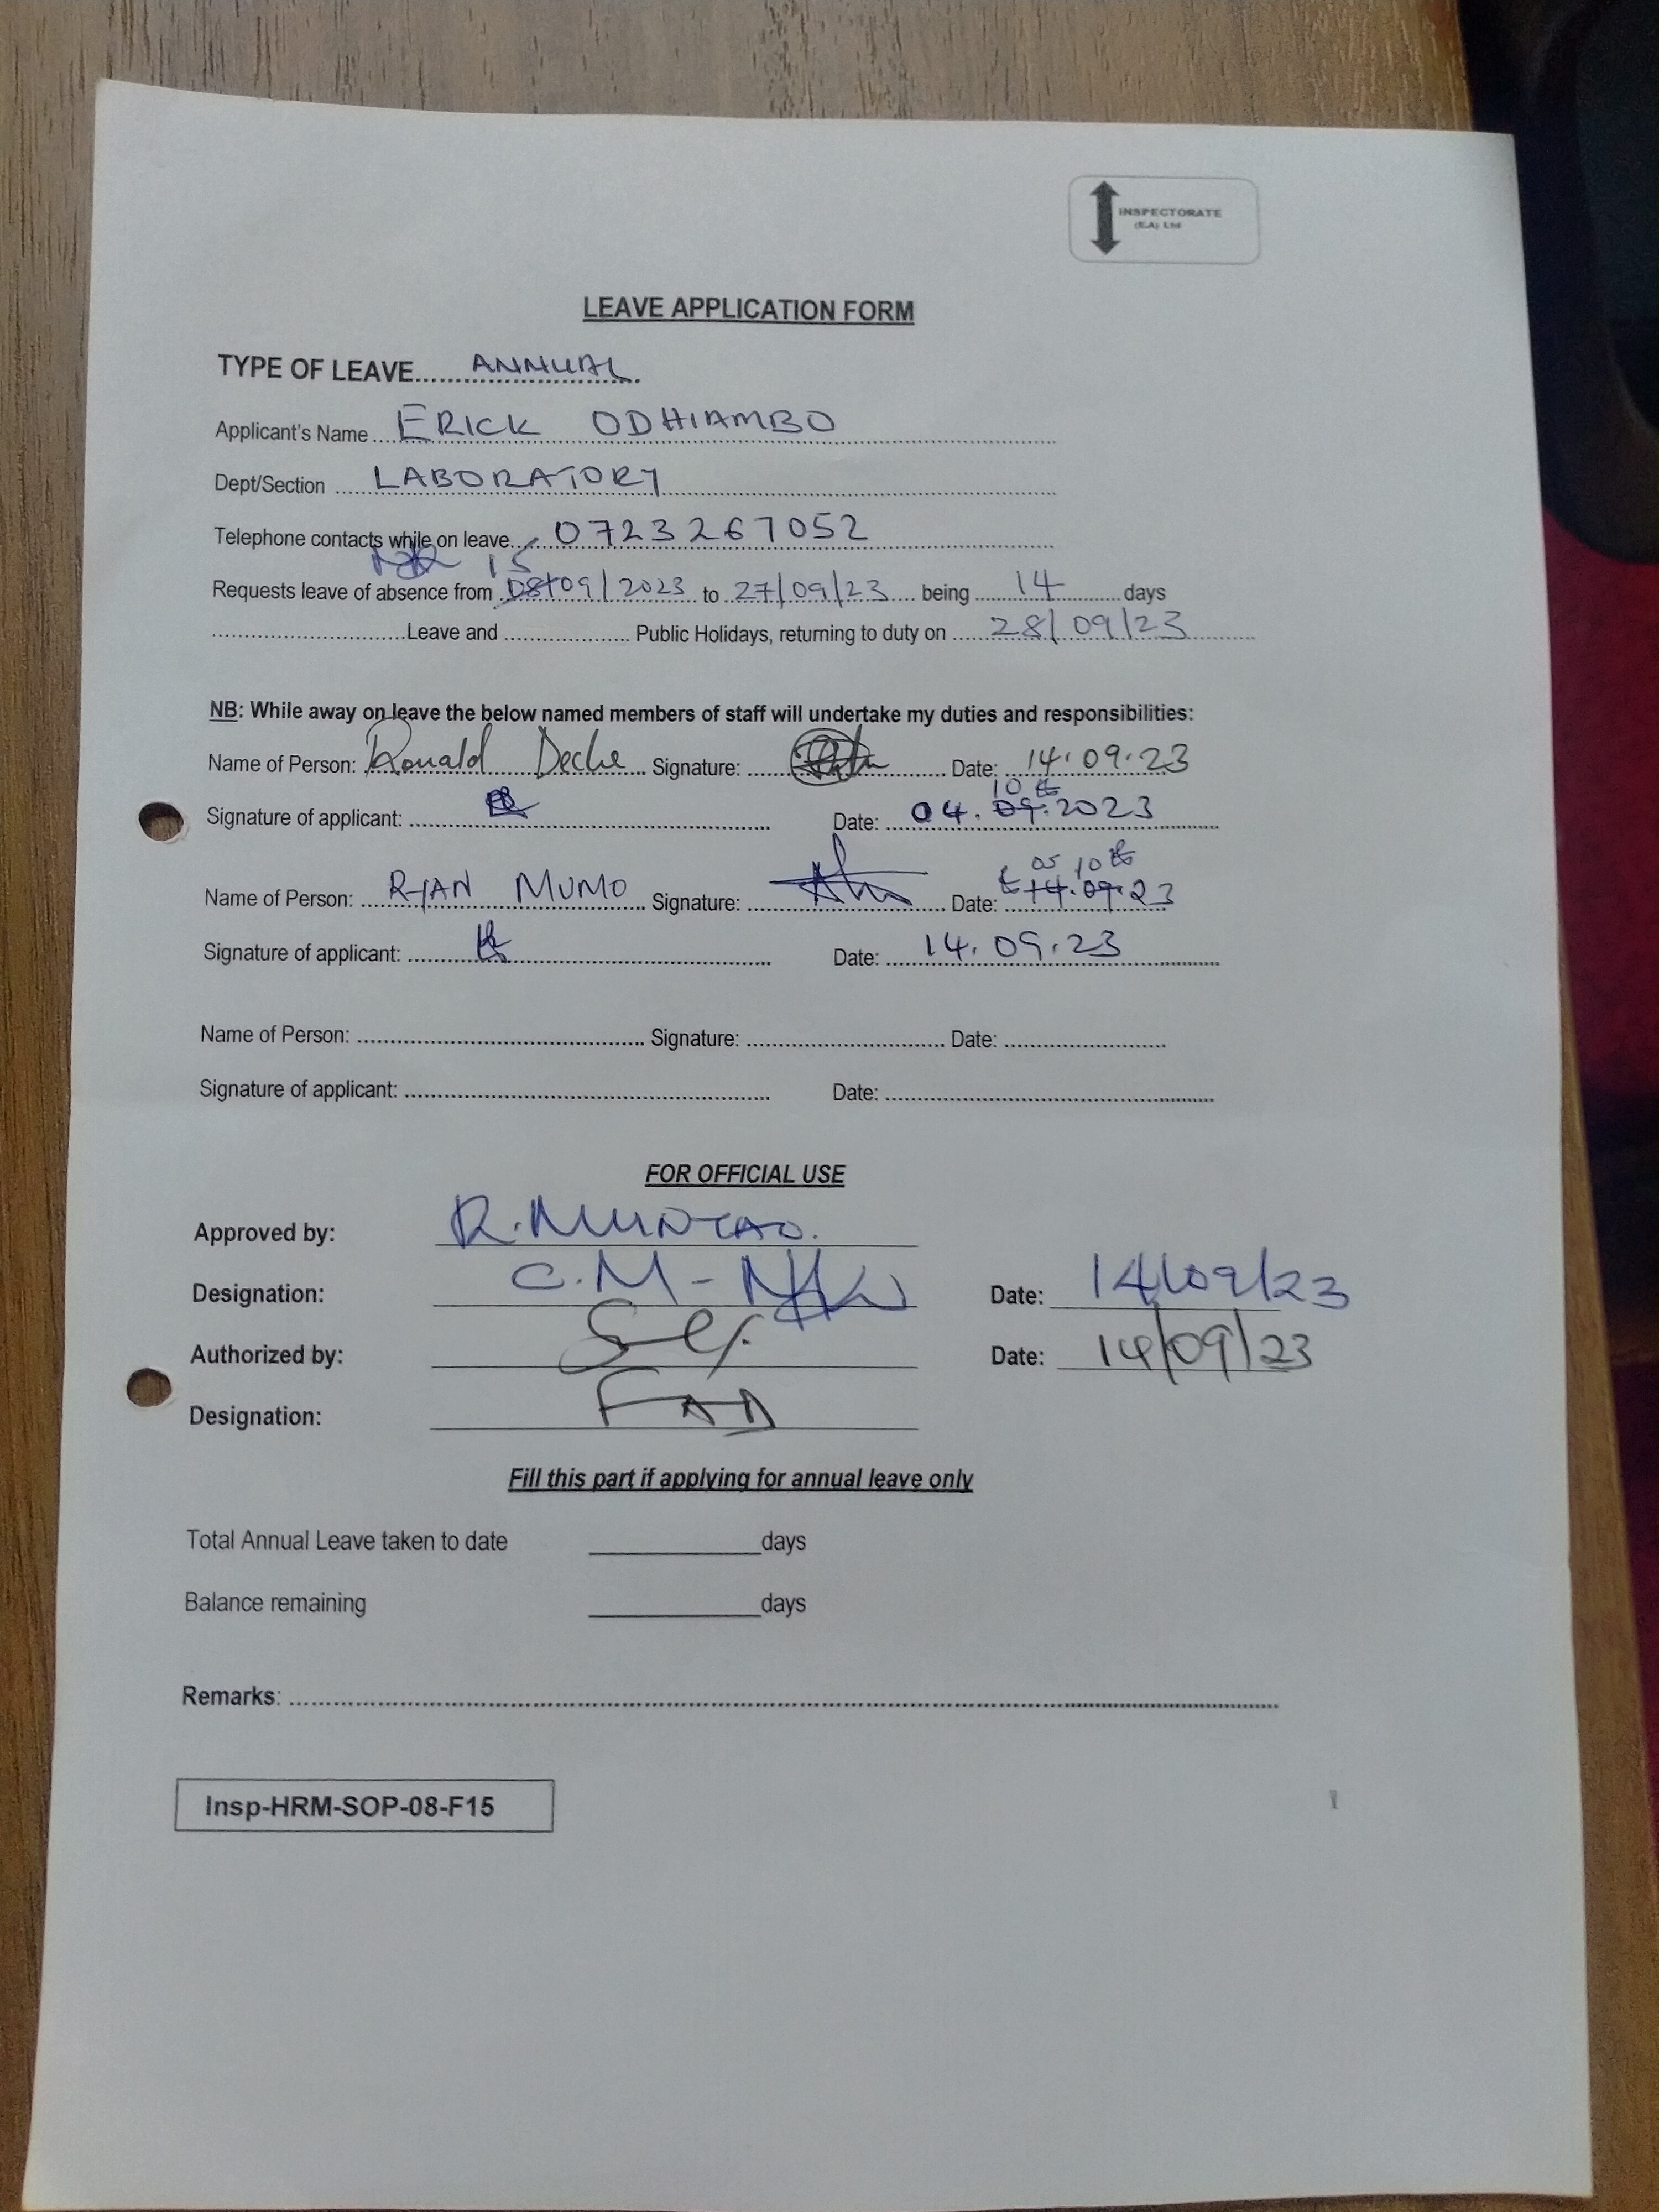 INSPECTORATE
(EA) Ltd
LEAVE APPLICATION FORM
TYPE OF LEAVE...... ANNUAL
Applicant's Name ... ERICK ODHIAMBO
Dept/Section .... LABORATORY
Telephone contacts while on leave..... 0723267052
15
Requests leave of absence from 08/09/2023 to 27/09/23 being 14 days
........ Leave and ........ Public Holidays, returning to duty on ..... 28/09/23
NB: While away on leave the below named members of staff will undertake my duties and responsibilities:
Name of Person: Ronald Deche Signature: ........ Date: 14.09.23
10
Signature of applicant: ........ Date: 04.09.2023
05 10
Name of Person: RYAN MUMO Signature: ........ Date: 14.09.23
Signature of applicant: ........ Date: 14.09.23
Name of Person: ........ Signature: ........ Date: ........
Signature of applicant: ........ Date: ........
FOR OFFICIAL USE
Approved by: R. MUNYAO.
Designation: C.M - Date: 14/09/23
Authorized by: Date: 14/09/23
Designation: FAD
Fill this part if applying for annual leave only
Total Annual Leave taken to date ________ days
Balance remaining ________ days
Remarks: ........
Insp-HRM-SOP-08-F15